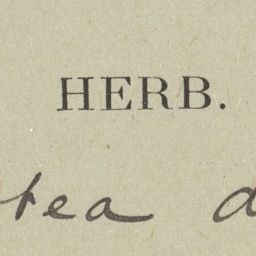 HERB.
tea d